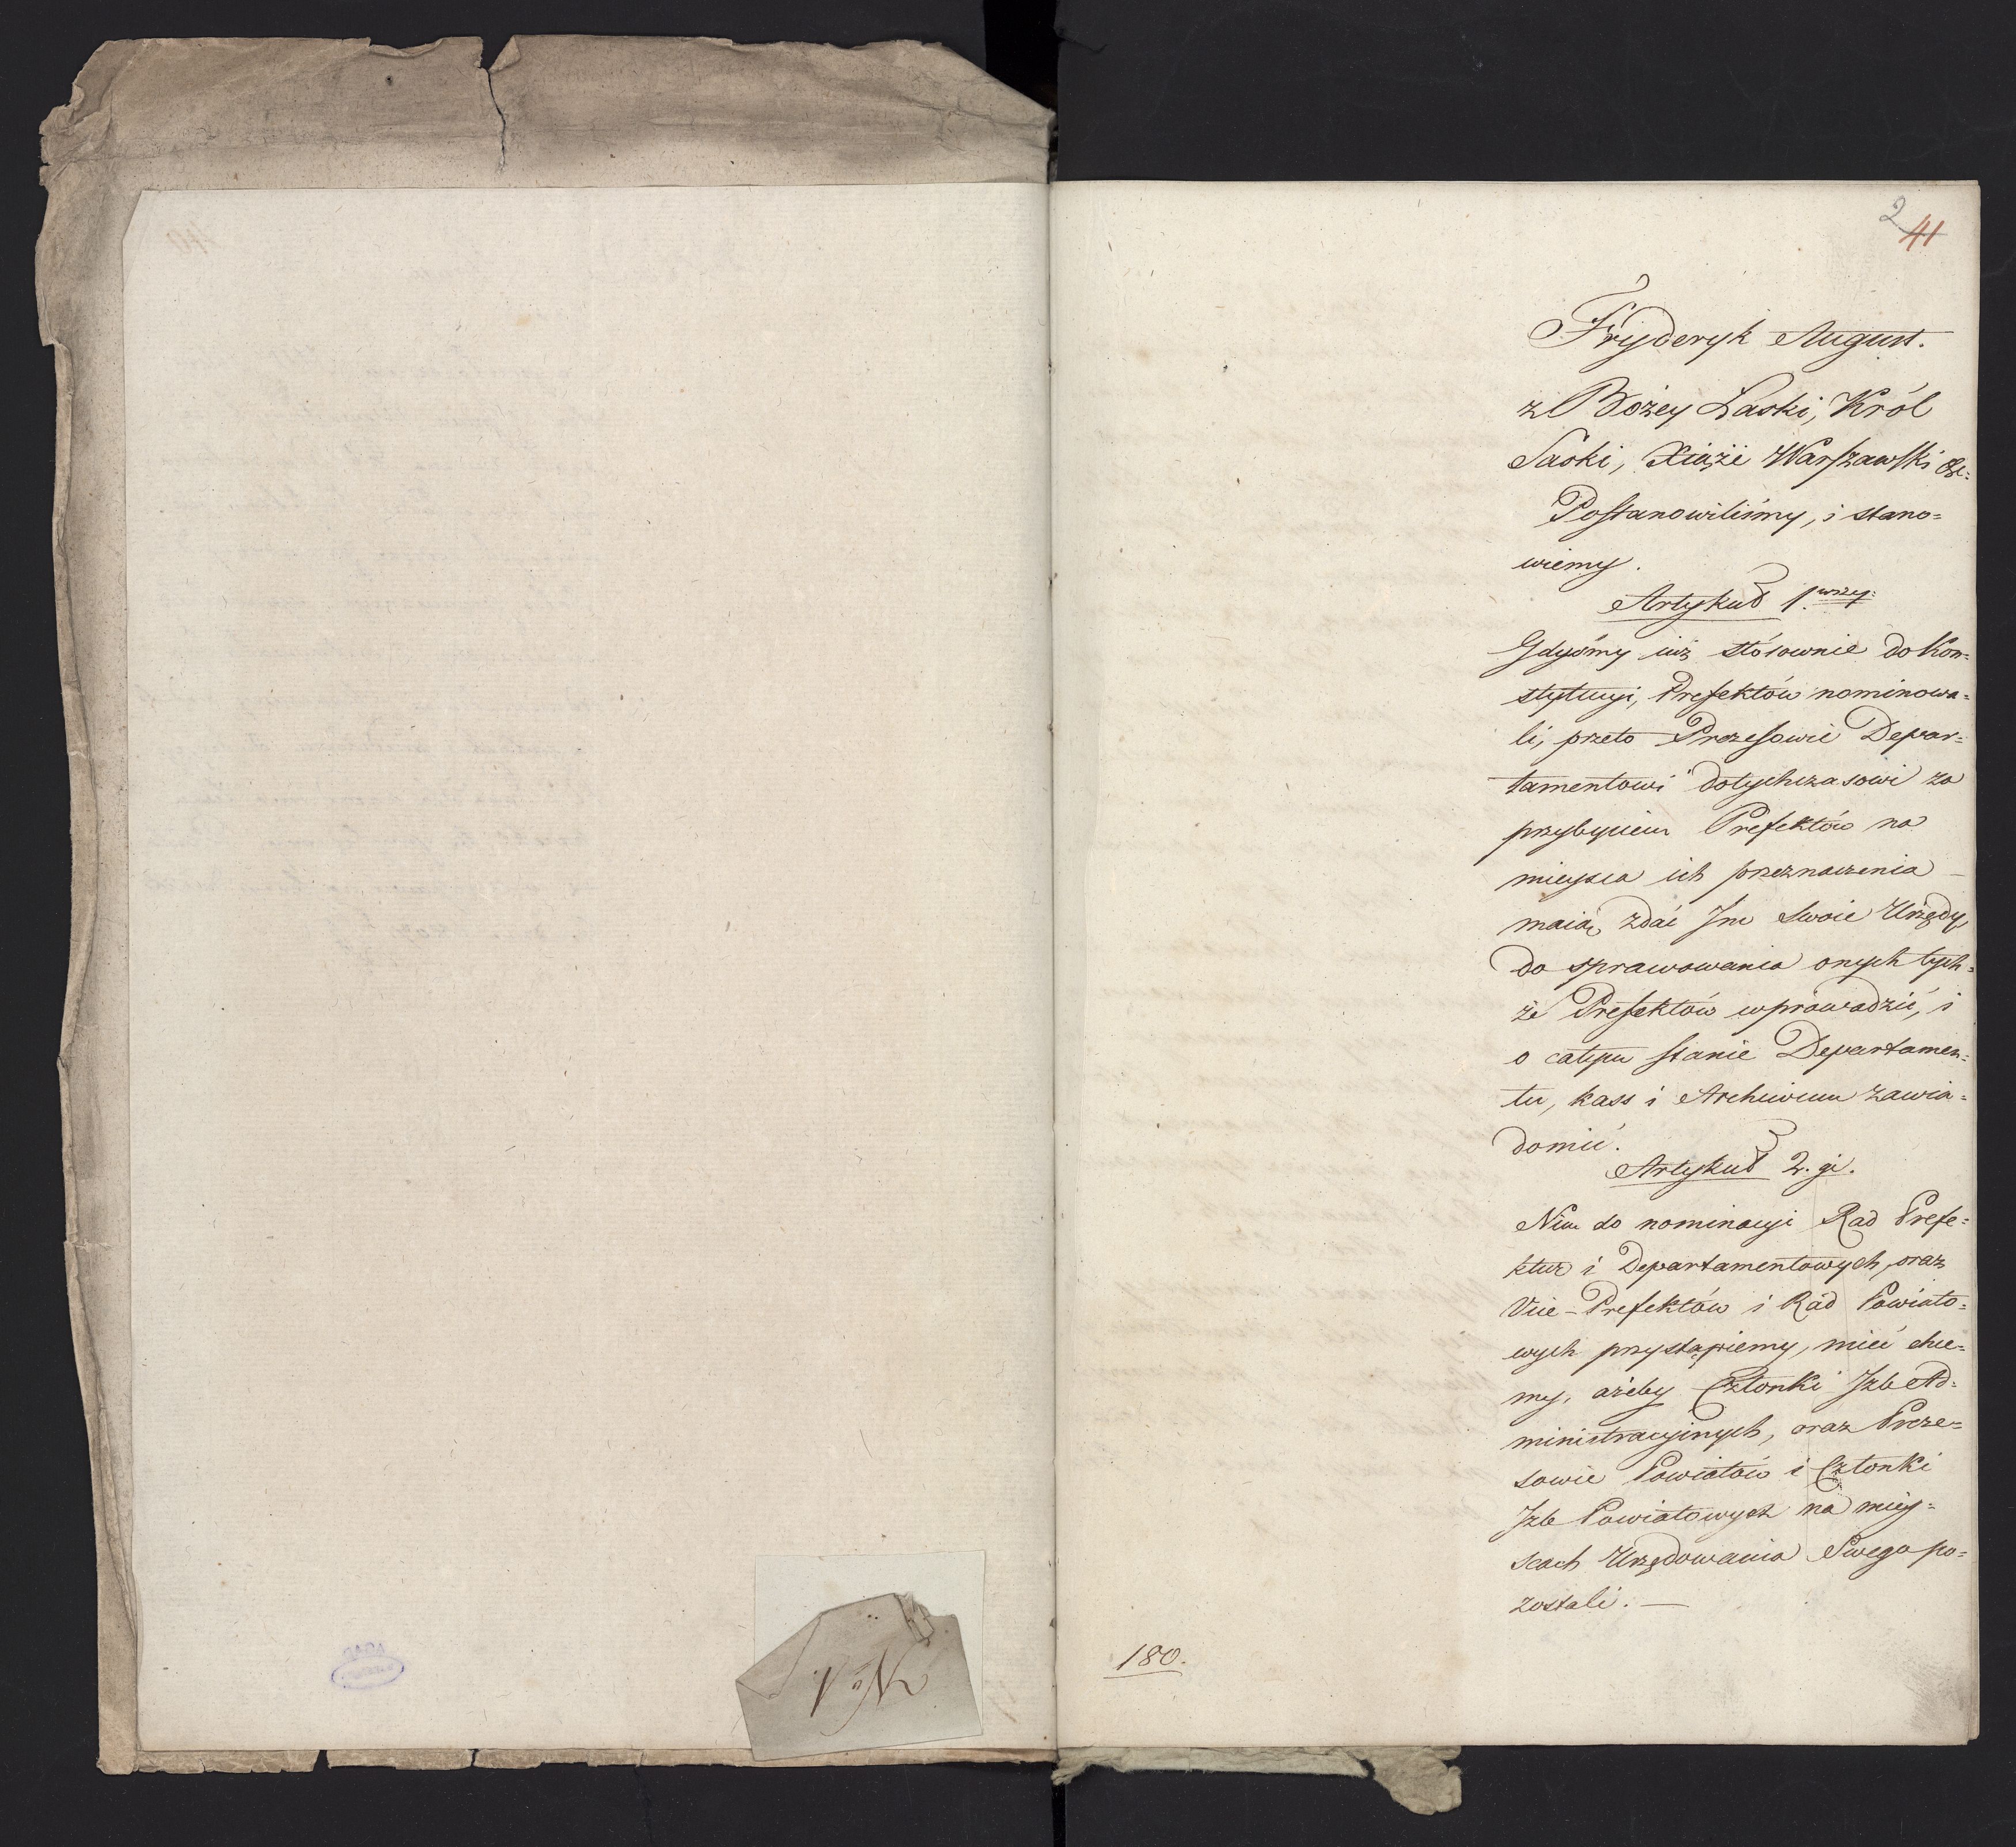 2
41
Fryderyk August.
z Bożey Łaski, Król
Saski, Xiąże Warszawski &c:
Postanowiliśmy, i stano=
wiemy.
Artykuł 1.wszy:
Gdyśmy iuż stósownie do Kon=
stytucyi, Prefektów nominowa=
li, przeto Prezesowie Depar=
tamentowi dotychczasowi za
przybyciem Prefektów na
mieysca ich przeznaczenia —
maią zdać Im Swoie Urzędy,
do sprawowania onych tych=
że Prefektów wprowadzić, i
o całym stanie Departamen=
tu, kass i Archiwum zawia=
domić.
Artykuł 2.gi.
Nim do nominacyi Rad Prefe=
ktur i Departamentowych, oraz
Vice-Prefektów i Rad Powiato=
wych przystąpiemy, mieć chce=
my, ażeby Członki Izb Ad=
ministracyinych, oraz Preze=
sowie Powiatów i Członki
Izb Powiatowych na miey=
scach Urzędowania Swego po=
zostali. —
180.